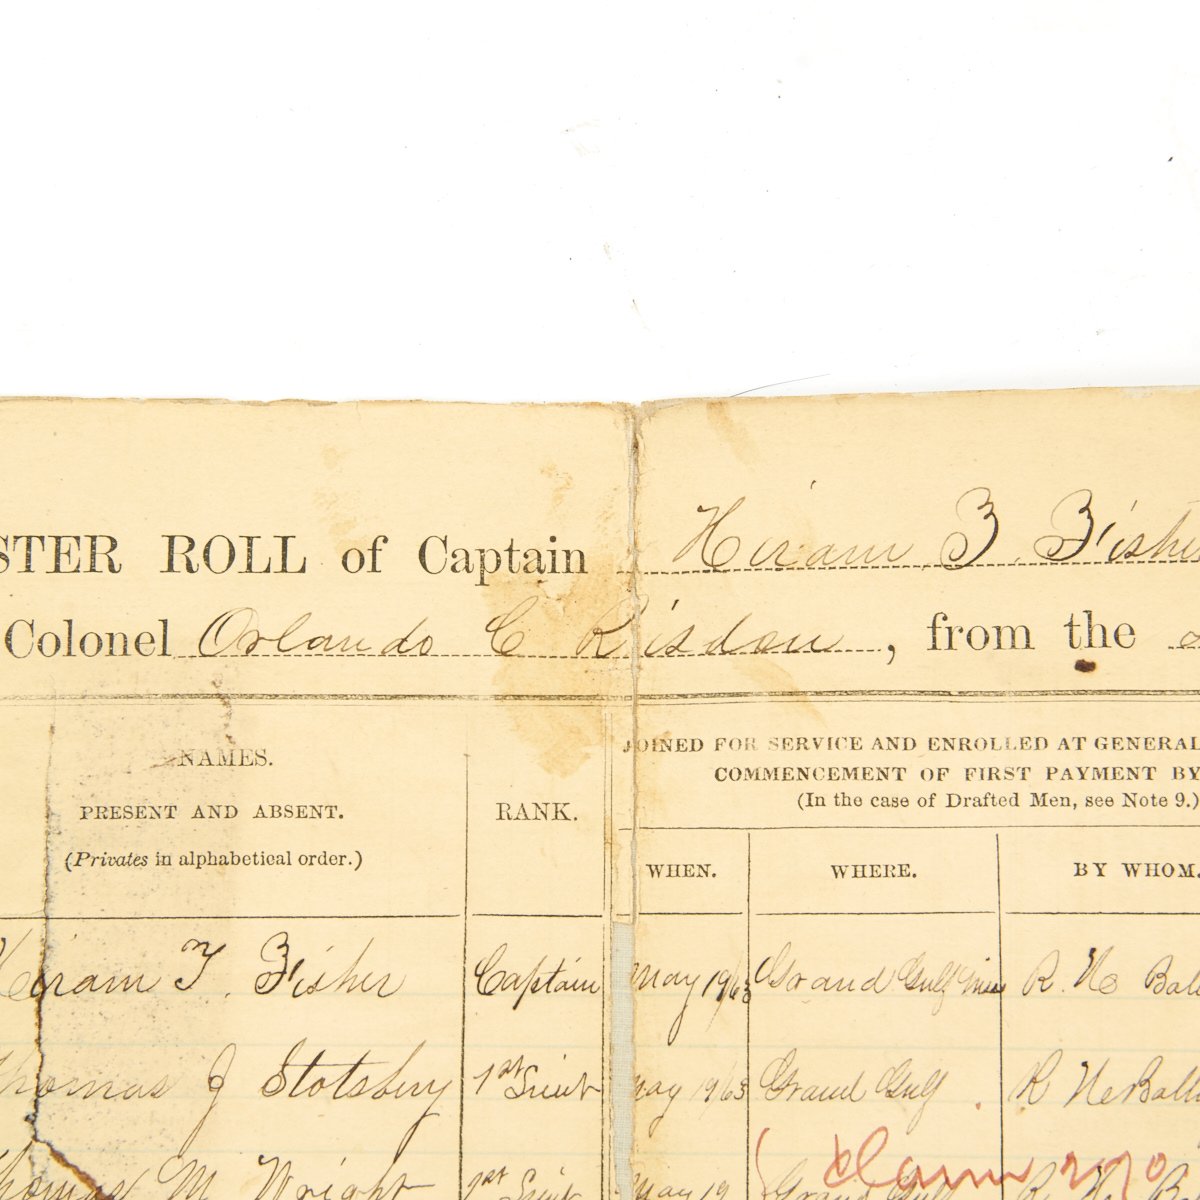 STER ROLL of Captain Hiram T. Fisher
Colonel Orlando C Risdon, from the
NAMES.
PRESENT AND ABSENT.
(Privates in alphabetical order.)
RANK.
JOINED FOR SERVICE AND ENROLLED AT GENERAL
COMMENCEMENT OF FIRST PAYMENT BY
(In the case of Drafted Men, see Note 9.)
WHEN. WHERE. BY WHOM.
Hiram T. Fisher Captain May 19/63 Grand Gulf Miss R. N.
Thomas J Stotsbery 1st Lieut May 19/63 Grand Gulf R
Thomas M Wright 1st Lieut May 19 Grand Gulf R N B
Claim